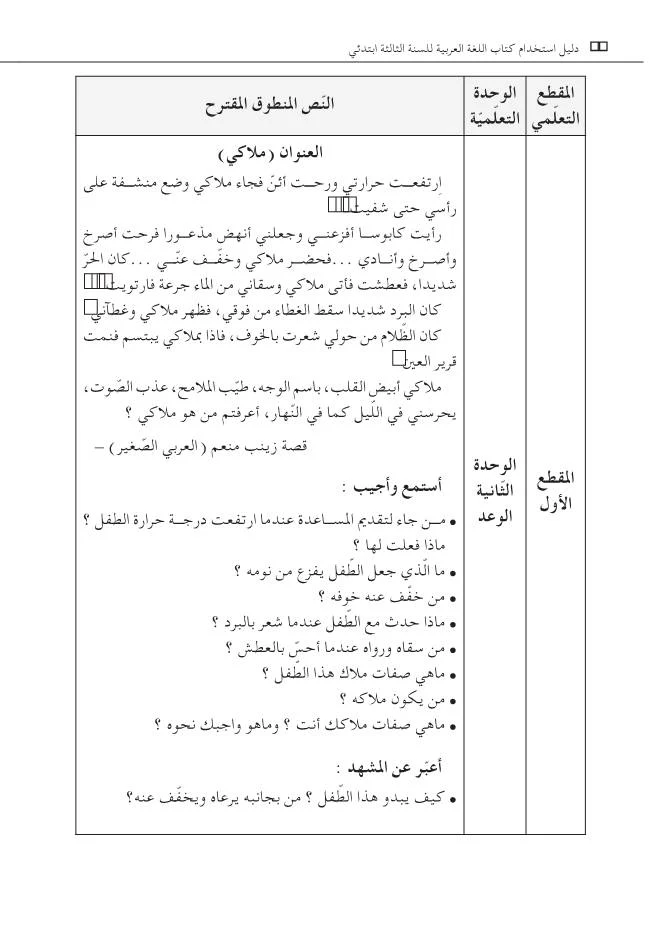 دليل استخدام كتاب اللغة العربية للسنة الثالثة ابتدئي
المقطع التعلّمي
الوحدة التعلّميّة
النّص المنطوق المقترح
المقطع الأول
الوحدة الثّانية الوعد
العنوان (ملاكي)
اِرتفعت حرارتي ورحت أئنّ فجاء ملاكي وضع منشفة على
رأسي حتى شفيت
رأيت كابوسا أفزعني وجعلني أنهض مذعورا فرحت أصرخ
وأصرخ وأنادي ...فحضر ملاكي وخفّف عنّي ...كان الحرّ
شديدا، فعطشت فأتى ملاكي وسقاني من الماء جرعة فارتويت
كان البرد شديدا سقط الغطاء من فوقي، فظهر ملاكي وغطآني
كان الظّلام من حولي شعرت بالخوف، فاذا بملاكي يبتسم فنمت
قرير العين
ملاكي أبيض القلب، باسم الوجه، طيّب الملامح، عذب الصّوت،
يحرسني في اللّيل كما في النّهار، أعرفتم من هو ملاكي ؟
قصة زينب منعم (العربي الصّغير) –
أستمع وأجيب :
• من جاء لتقديم المساعدة عندما ارتفعت درجة حرارة الطفل ؟
ماذا فعلت لها ؟
• ما الّذي جعل الطّفل يفزع من نومه ؟
• من خفّف عنه خوفه ؟
• ماذا حدث مع الطّفل عندما شعر بالبرد ؟
• من سقاه ورواه عندما أحسّ بالعطش ؟
• ماهي صفات ملاك هذا الطّفل ؟
• من يكون ملاكه ؟
• ماهي صفات ملاكك أنت ؟ وماهو واجبك نحوه ؟
أعبّر عن المشهد :
• كيف يبدو هذا الطّفل ؟ من بجانبه يرعاه ويخفّف عنه؟